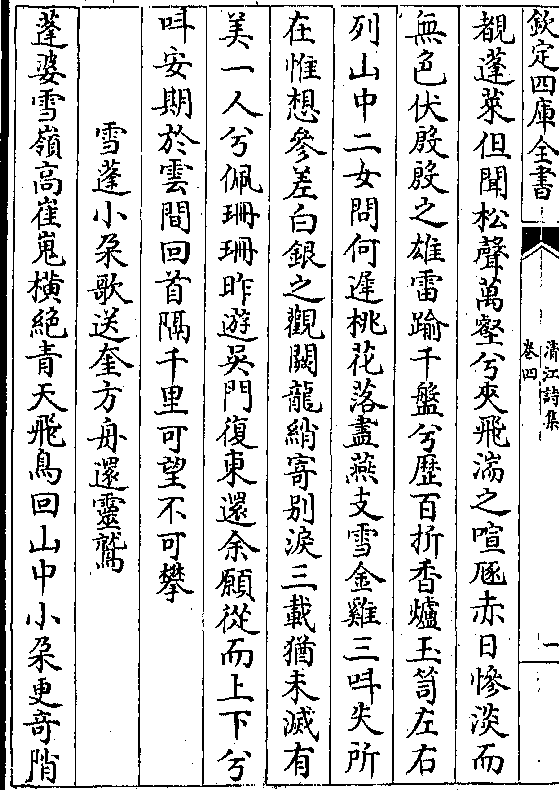 欽定四庫全書
清江詩集
卷四
一
覩蓬萊但聞松聲萬壑兮夾飛湍之喧豗赤日慘淡而
無色伏殷殷之雄雷踰千盤兮歷百折香爐玉笥左右
列山中二女問何遲桃花落盡燕支雪金雞三呌失所
在惟想參差白銀之觀闕龍綃寄别淚三載猶未滅有
美一人兮佩珊珊昨遊吳門復東還余願從而上下兮
呌安期於雲間回首隔千里可望不可攀
雪蓬小朶歌送奎方舟還靈鷲
蓬婆雪嶺高崔嵬橫絶青天飛鳥回山中小朶更竒陗